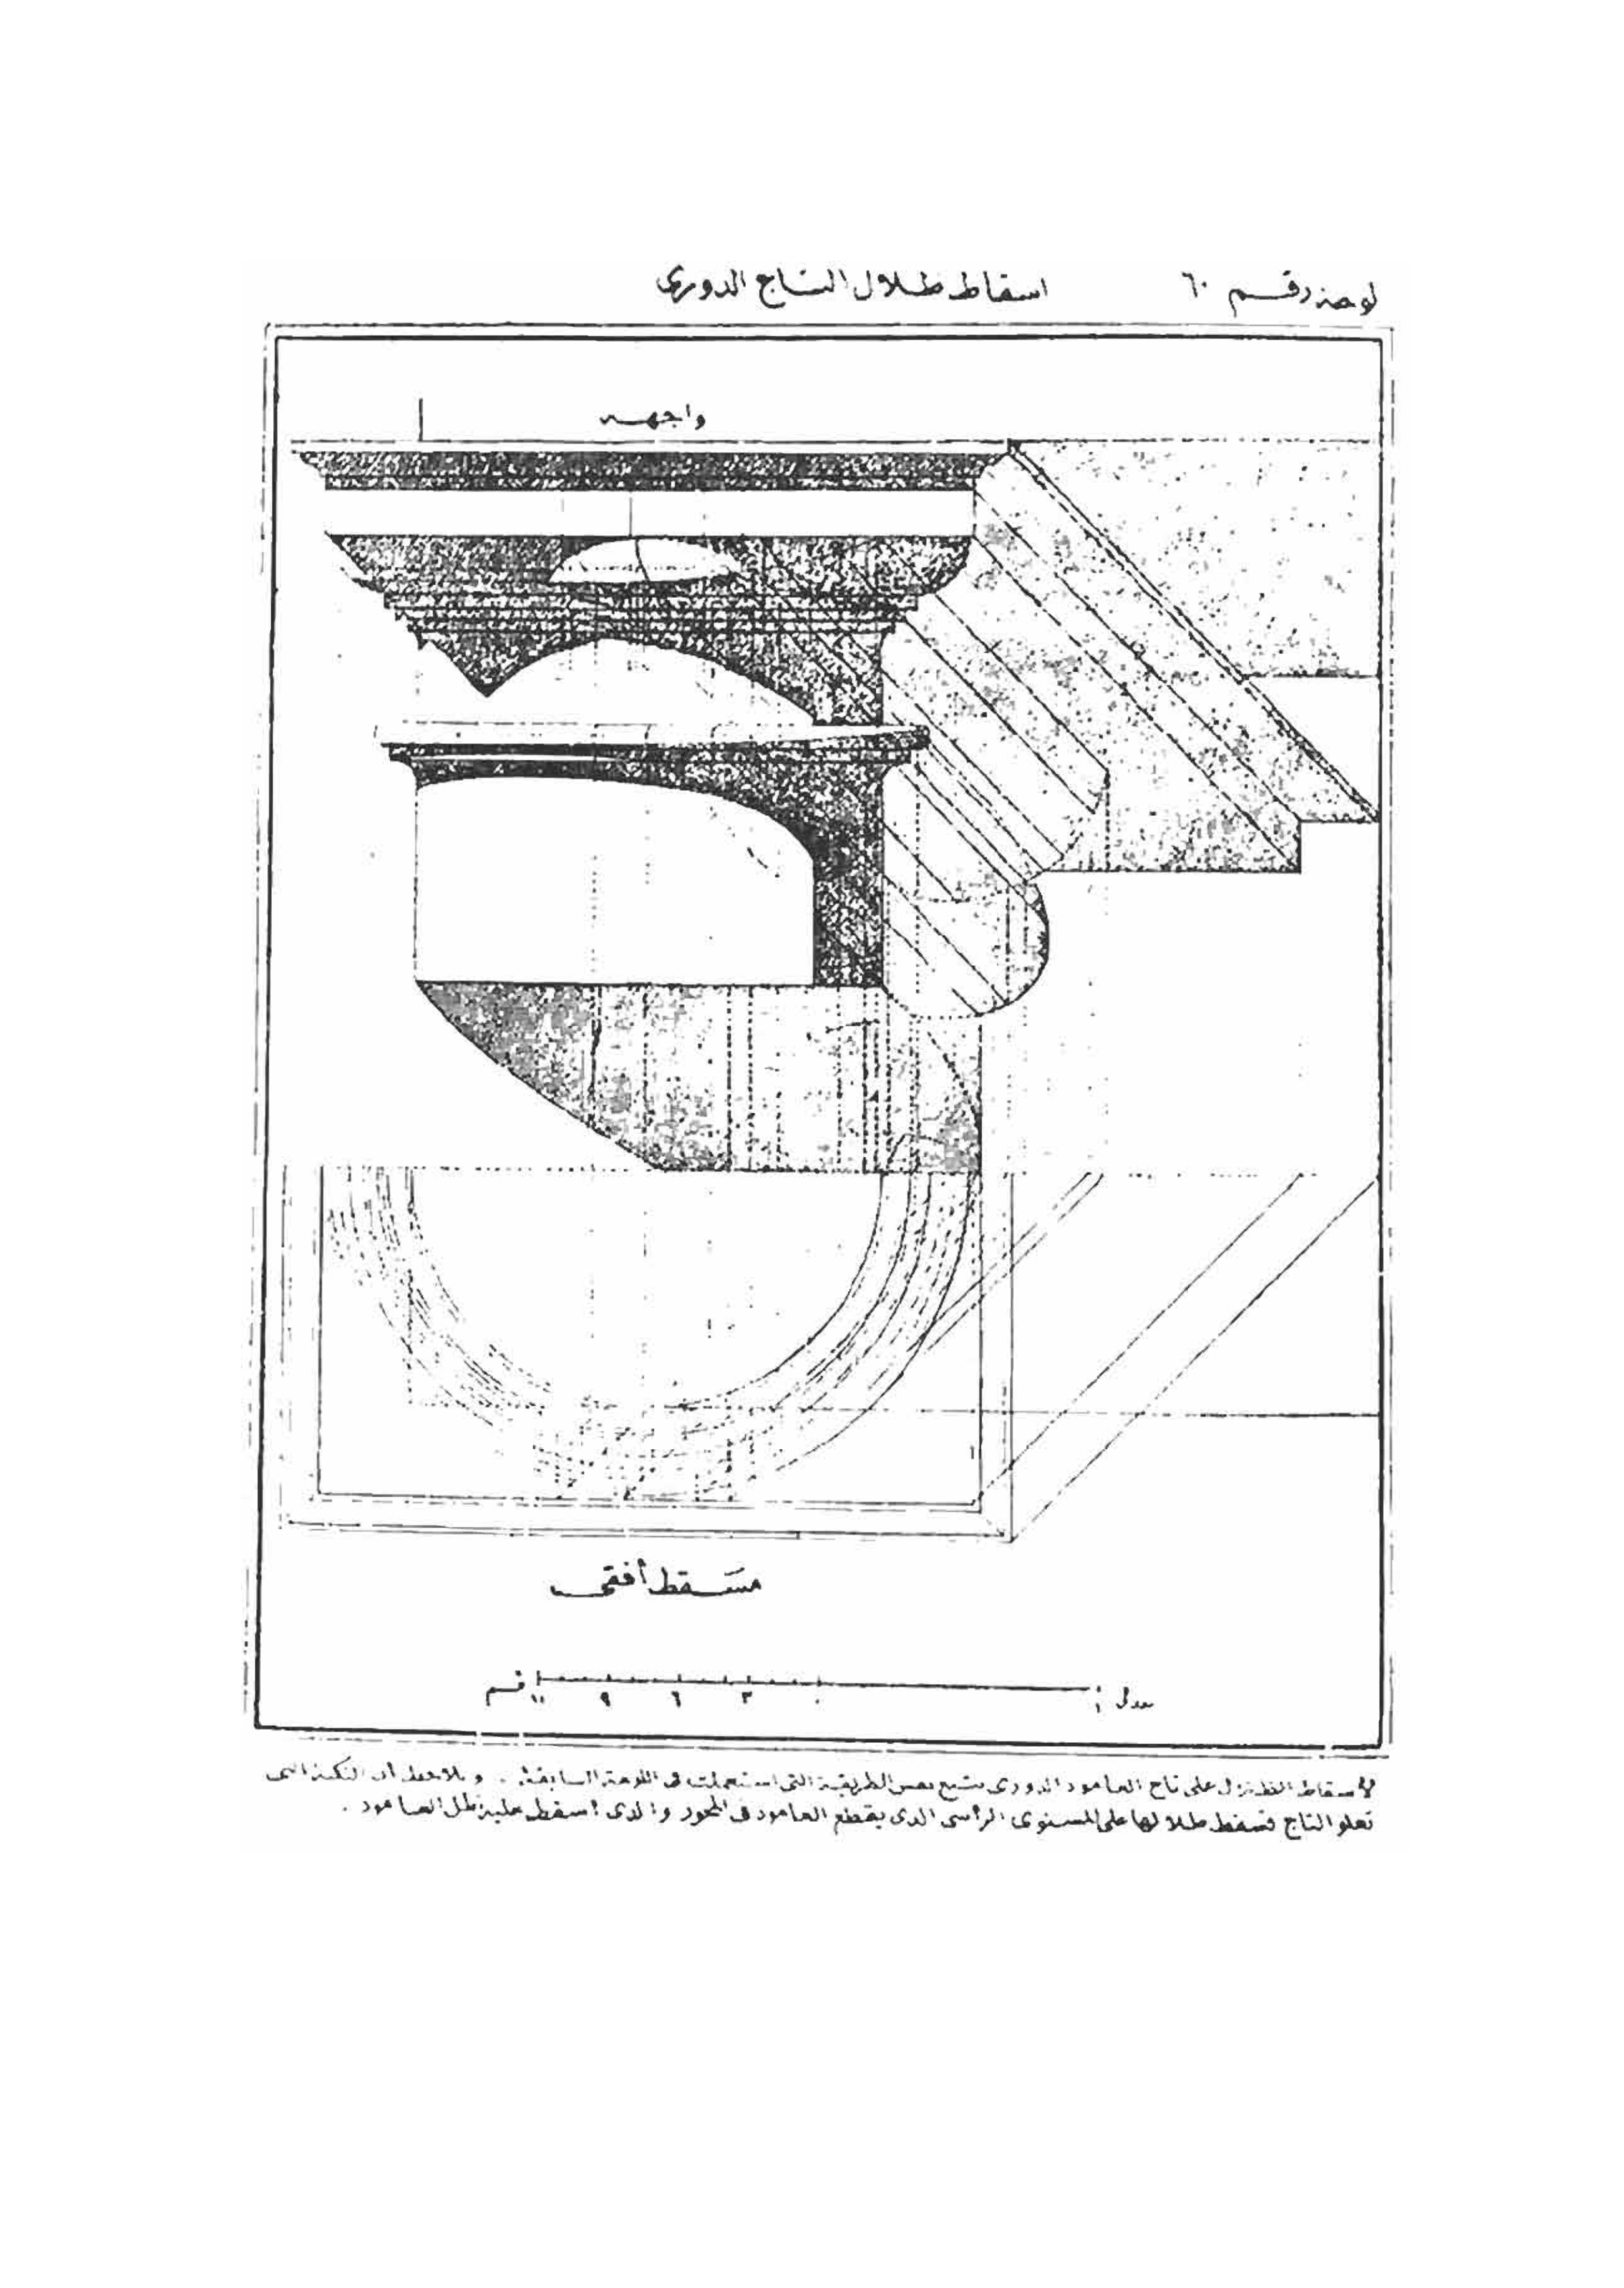 لوحة رقم ٦٠
اسقاط ظلال التاج الدورى
واجهه
مسقط أفقى
٠ ٣ ٦ ٩
لأسقاط الظل على تاج العامود الدورى يتبع نفس الطريقة التى استعملت فى اللوحة السابقة . ويلاحظ أن التكنة التى
تعلو التاج تسقط ظلالها على المستوى الرأسى الذى يقطع العامود فى المحور والذى أسقط عليه ظل العامود .